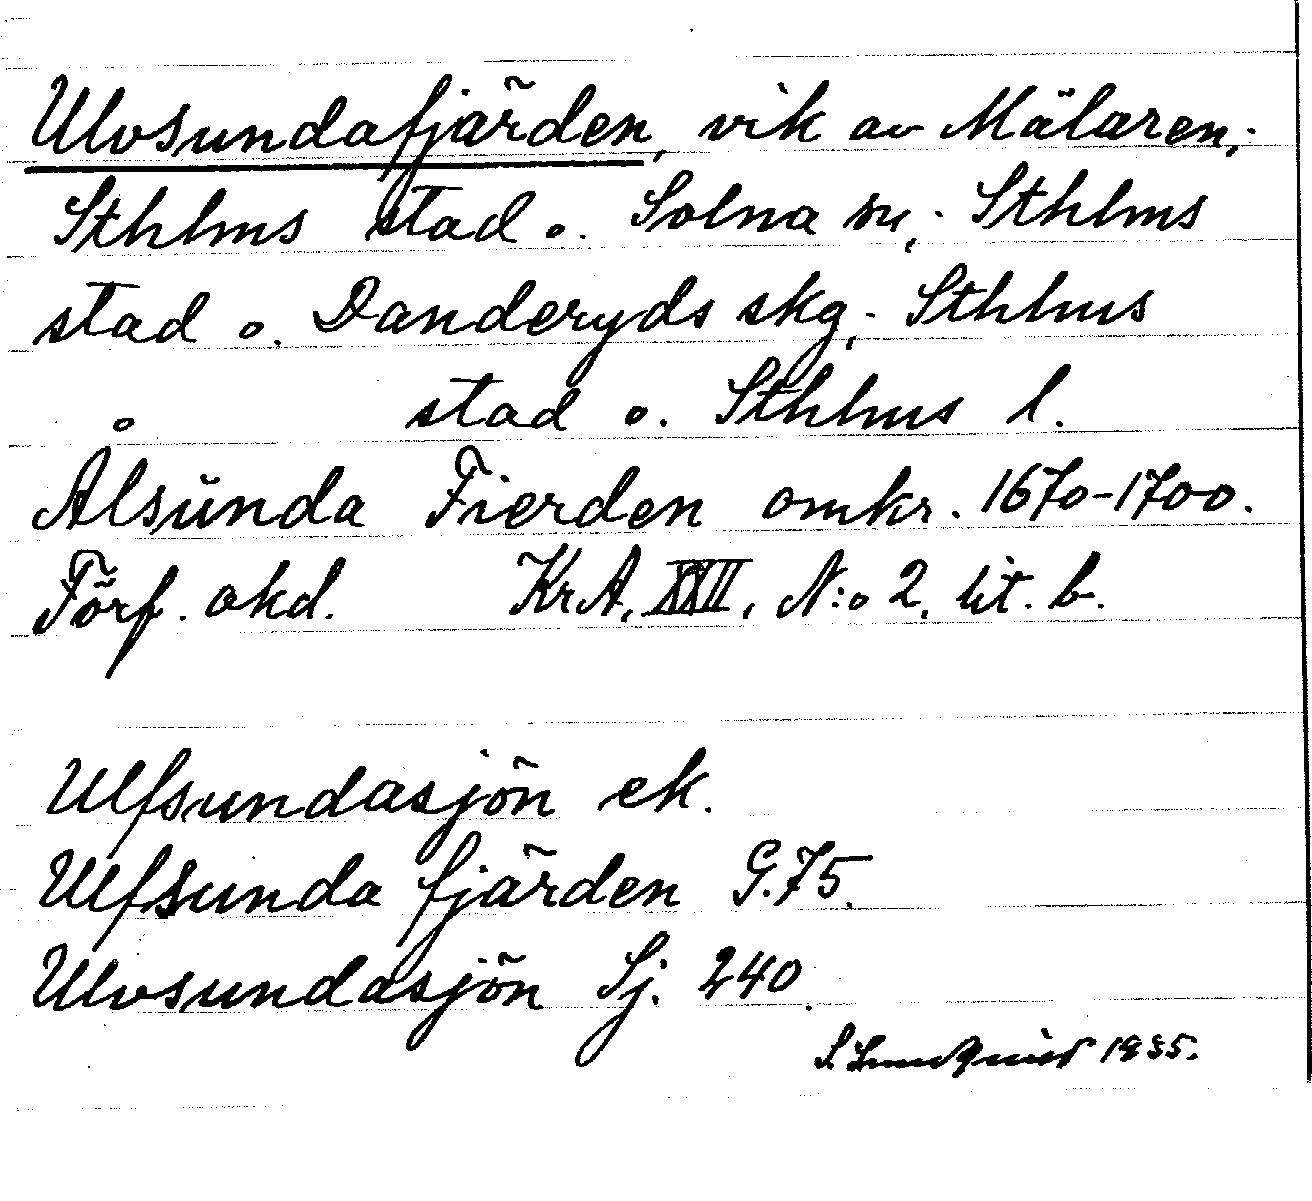 Ulvsundafjärden, vik av Mälaren;
Sthlms stad o. Solna sn; Sthlms
stad o. Danderyds skg; Sthlms
stad o. Sthlms l.
Ålsŭnda Fierden omkr. 1670-1700.
Förf. okd. KrA, XXII, N:o 2, lit. b.
Ulfsundasjön ek.
Ulfsunda fjärden G.75.
Ulvsundasjön Sj. 240.
S. 1935.